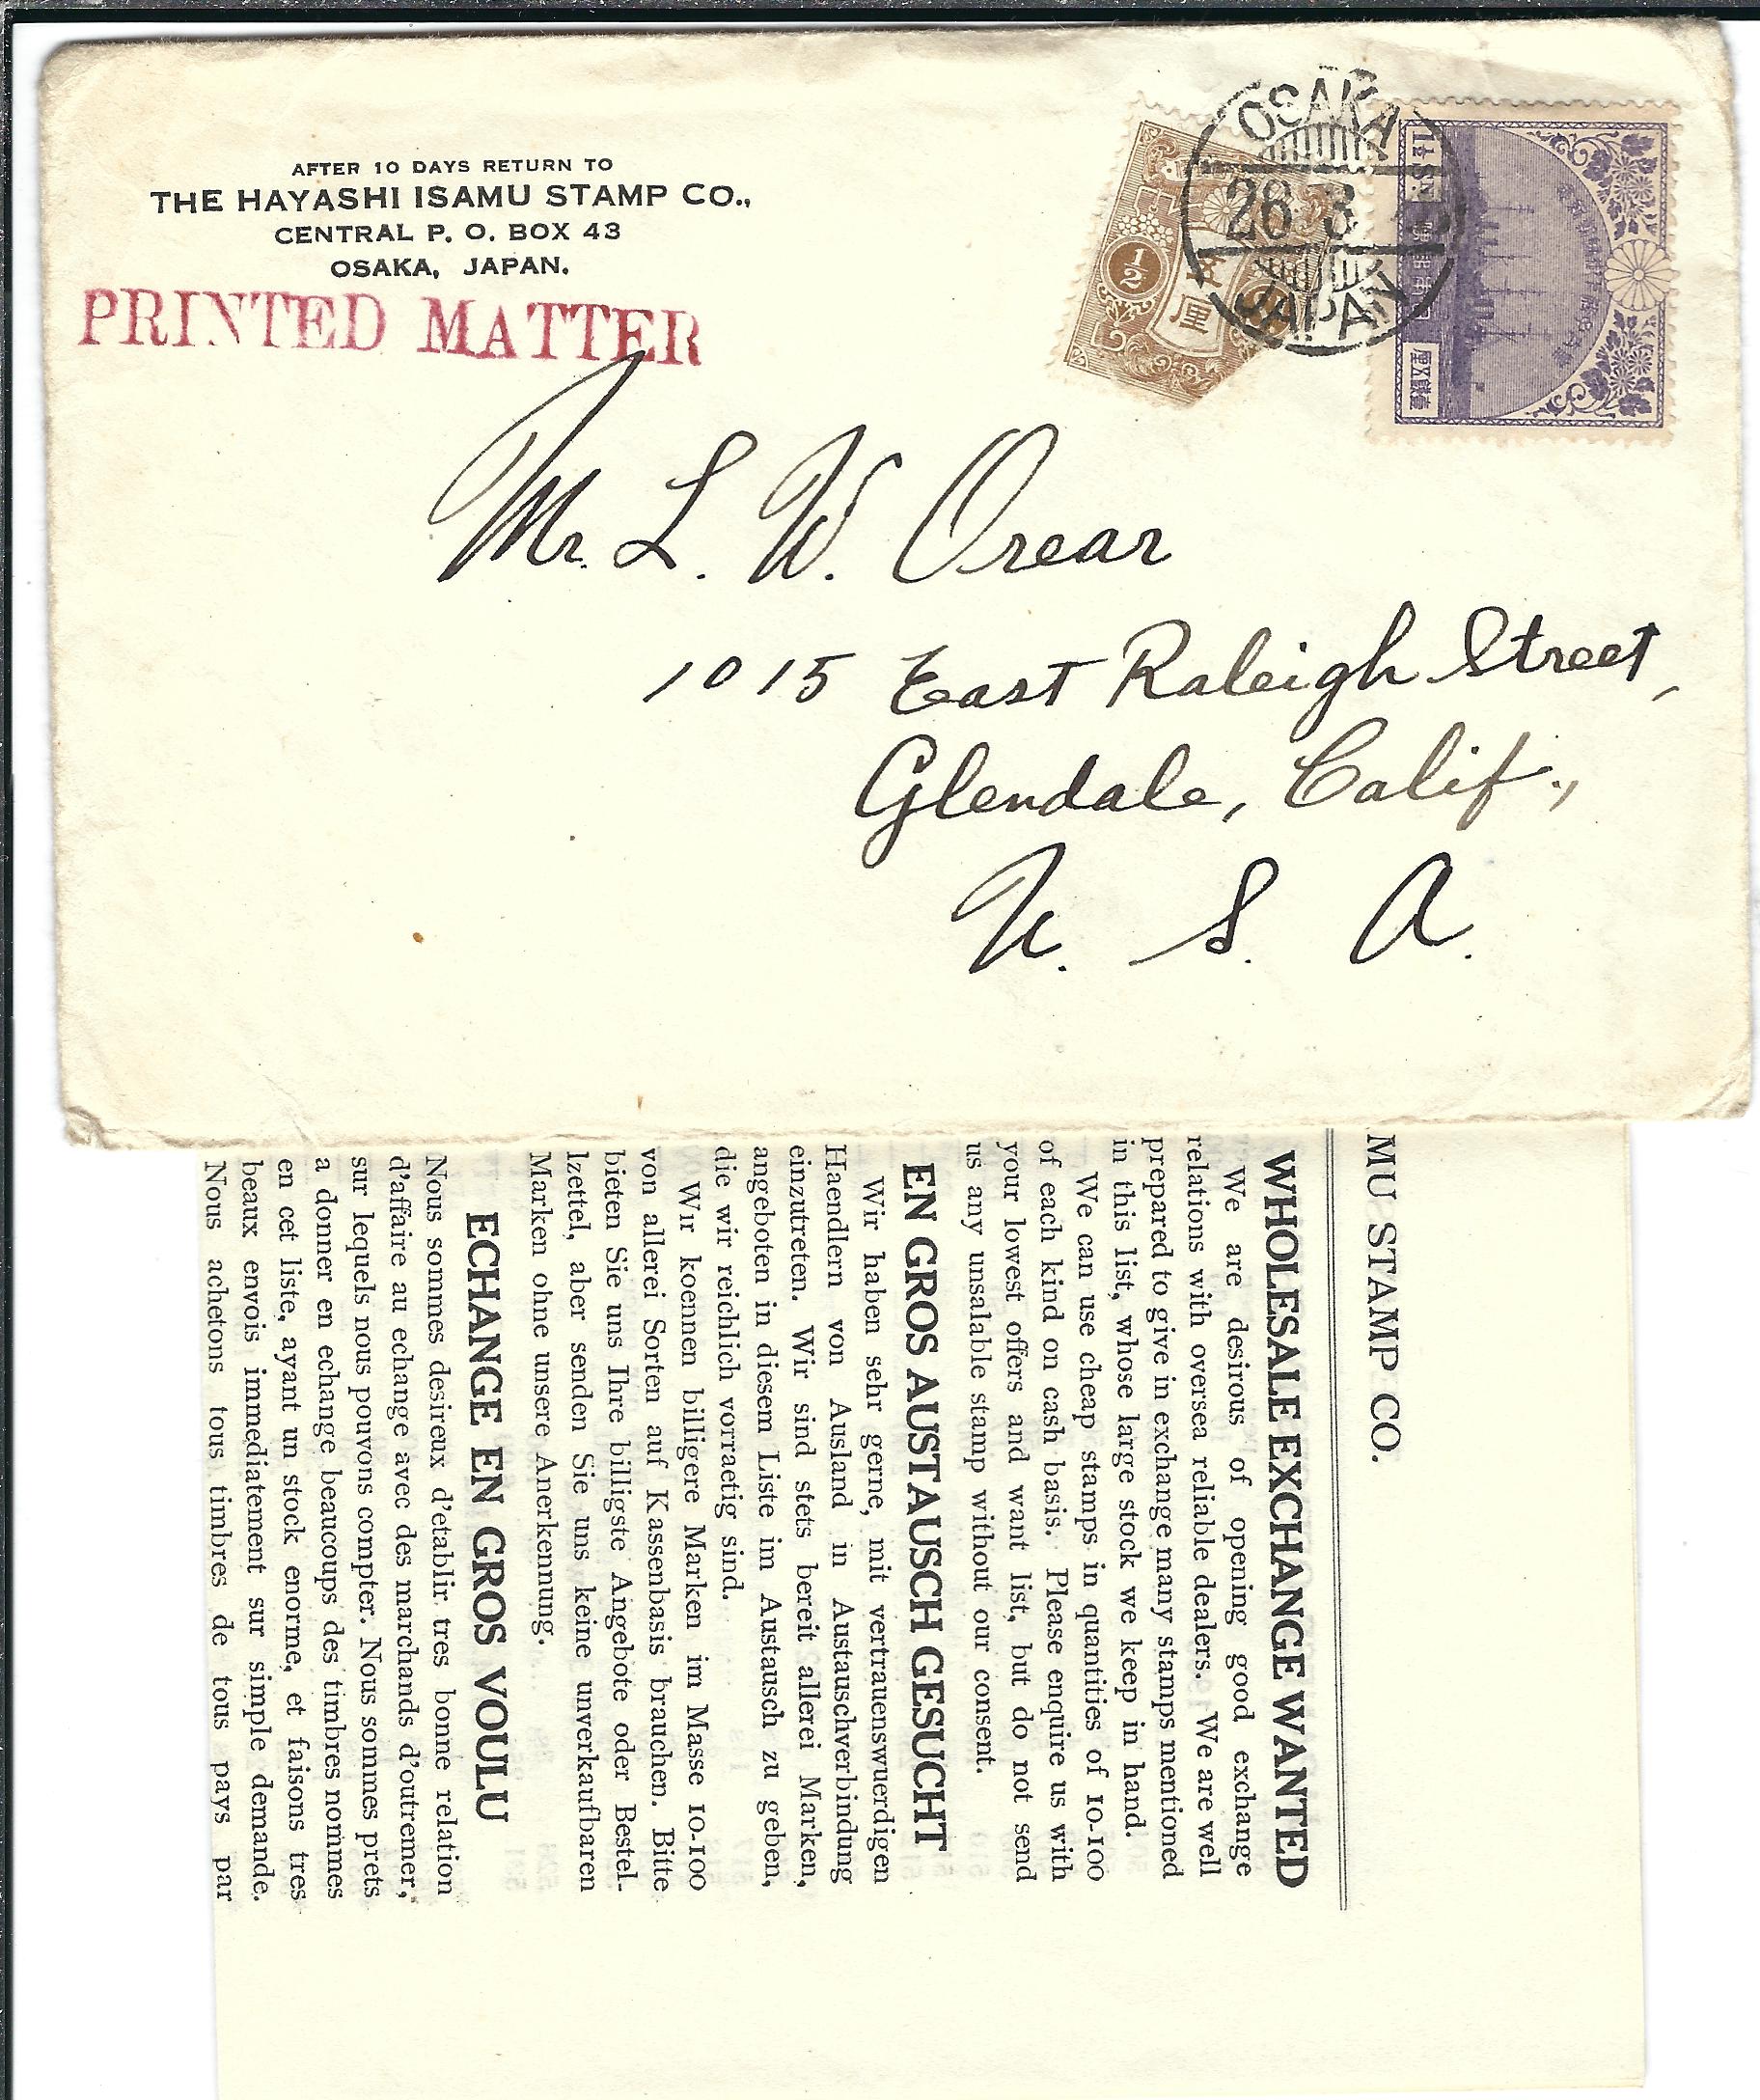 AFTER 10 DAYS RETURN TO
THE HAYASHI ISAMU STAMP CO.,
CENTRAL P. O. BOX 43
OSAKA, JAPAN.
PRINTED MATTER
OSAKA
26 3
JAPAN
1/2
厘
1½ SN
Mr. L. W. Orear
1015 East Raleigh Street,
Glendale, Calif.,
U. S. A.
MU STAMP CO.
WHOLESALE EXCHANGE WANTED
We are desirous of opening good exchange
relations with oversea reliable dealers. We are well
prepared to give in exchange many stamps mentioned
in this list, whose large stock we keep in hand.
We can use cheap stamps in quantities of 10-100
of each kind on cash basis. Please enquire us with
your lowest offers and want list, but do not send
us any unsalable stamp without our consent.
EN GROS AUSTAUSCH GESUCHT
Wir haben sehr gerne, mit vertrauenswuerdigen
Haendlern von Ausland in Austauschverbindung
einzutreten. Wir sind stets bereit allerei Marken,
angeboten in diesem Liste im Austausch zu geben,
die wir reichlich vorraetig sind.
Wir koennen billigere Marken im Masse 10-100
von allerei Sorten auf Kassenbasis brauchen. Bitte
bieten Sie uns Ihre billigste Angebote oder Bestel-
lzettel, aber senden Sie uns keine unverkaufbaren
Marken ohne unsere Anerkennung.
ECHANGE EN GROS VOULU
Nous sommes desireux d'etablir tres bonne relation
d'affaire au echange avec des marchands d'outremer,
sur lequels nous pouvons compter. Nous sommes prets
a donner en echange beaucoups des timbres nommes
en cet liste, ayant un stock enorme, et faisons tres
beaux envois immediatement sur simple demande.
Nous achetons tous timbres de tous pays par